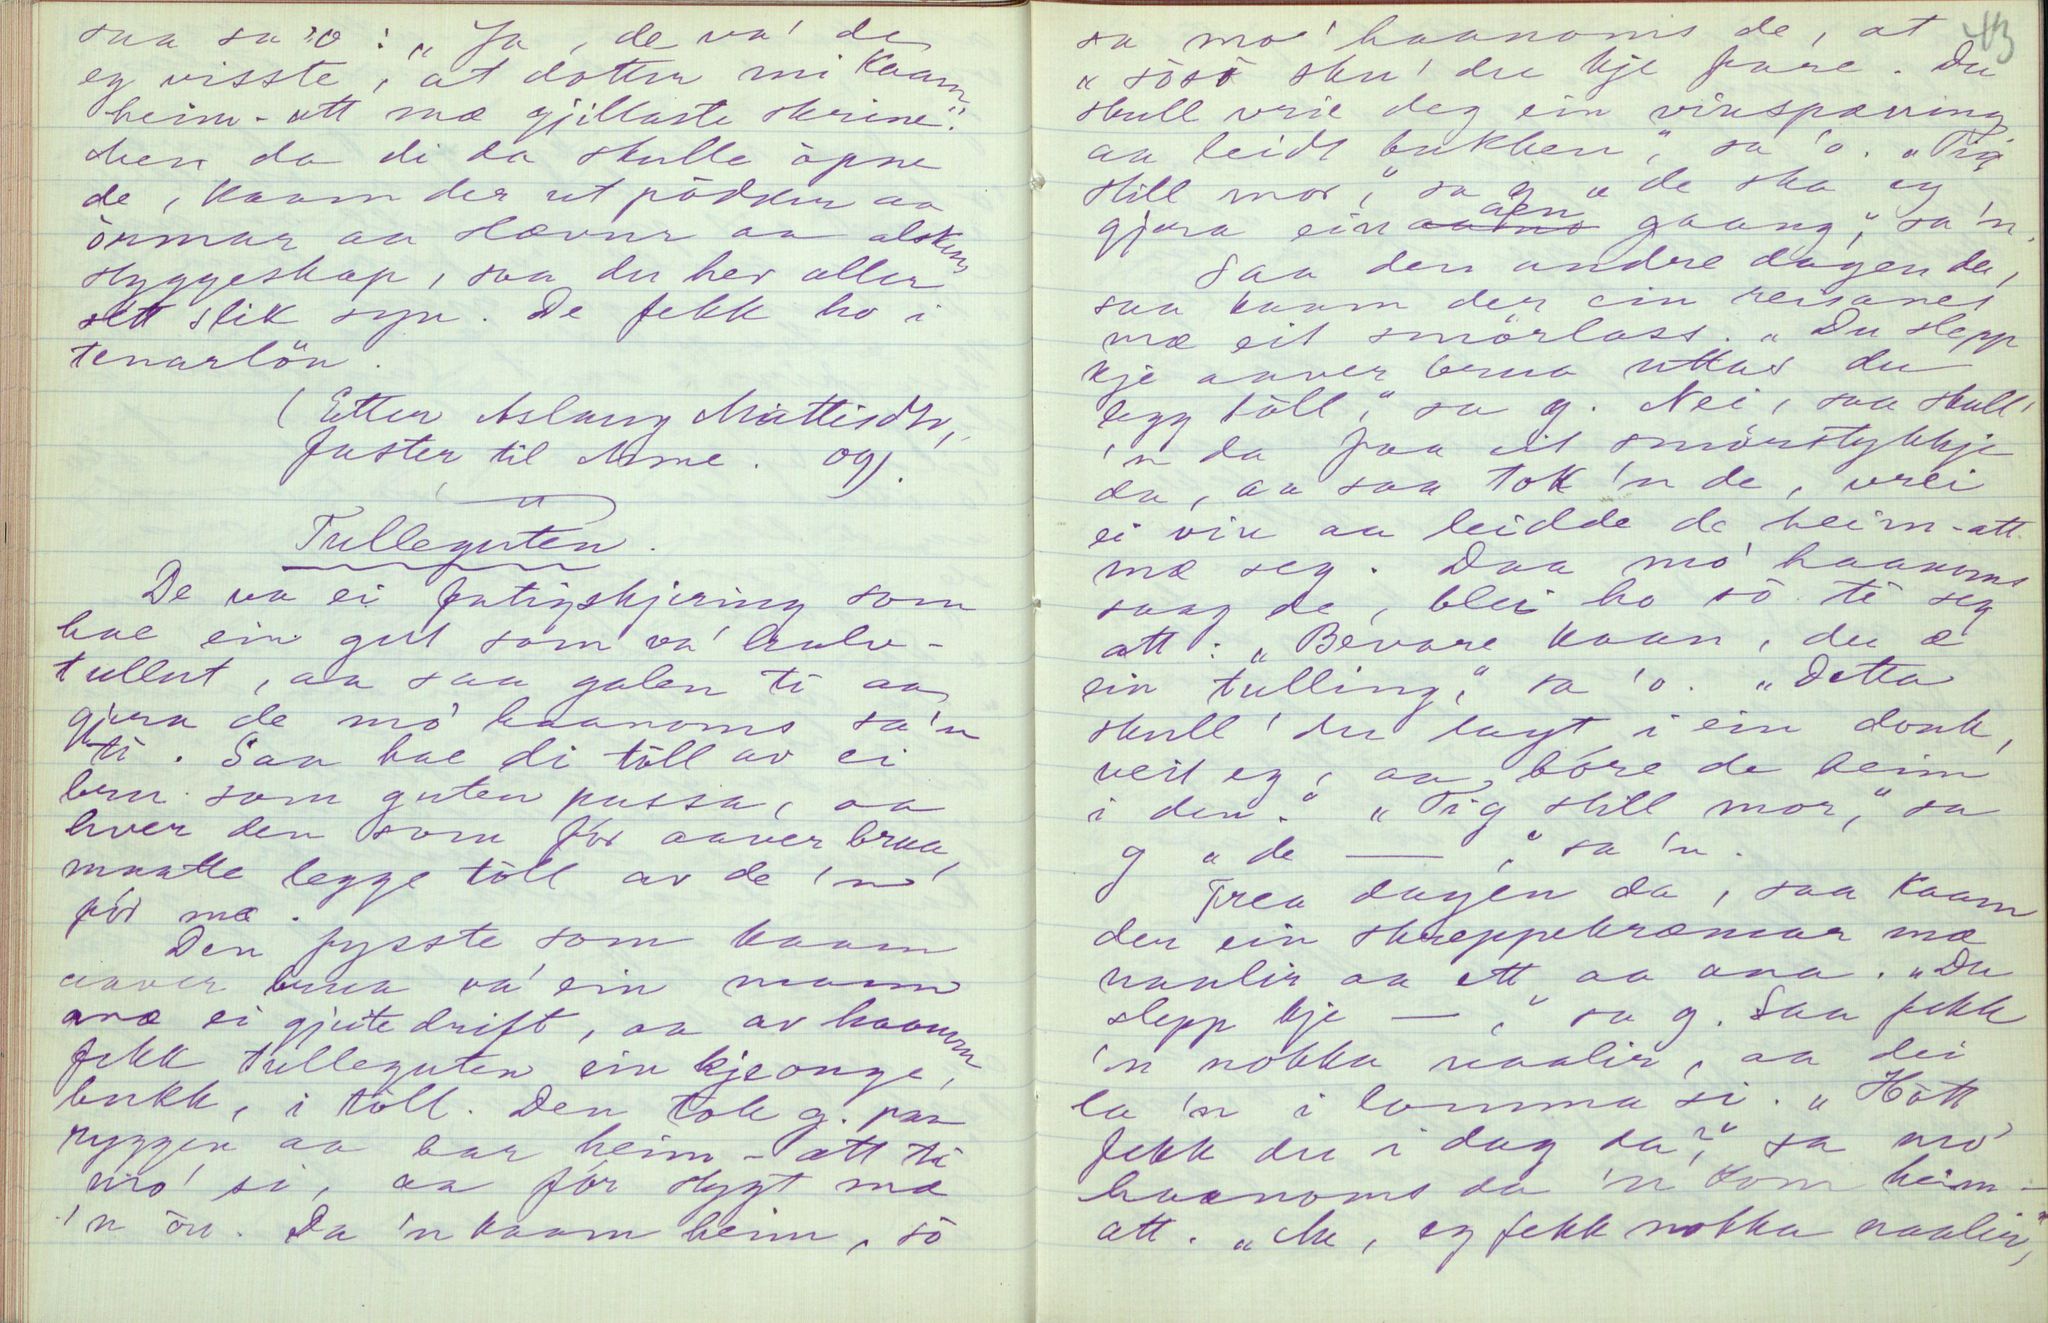 saa sa 'o: „Ja, de va' de
eg visste," at dotter mi kaam
heim-att mæ gjillaste skrine".
Men da di da skulle òpne
de, kaam der ut pòdder aa
òrmar aa slævur aa alskens
styggeskap, saa du hev aller
sett slik syn. De fekk ho i
tenarlön.
(Etter Aslaug Mattisdtr,
faster til Anne. og).
Tulleguten.
De va ei fatigskjering som
hae ein gut som va' halv-
tullut, aa saa galen ti aa
gjera de mo' haanoms sa'n
ti. Saa hae di tòll av ei
bru som guten passa, aa
hver den som fór aaver brua,
maatte legge tòll av de 'n
fór mæ.
Den fysste som kaam
aaver brua va' ein mann
mæ ei gjeitedrift, aa av haanom
fekk tulleguten ein kjeonge,
bukk, i tòll. Den tok g. paa
ryggen aa bar heim-att ti
mo' si, aa fór stygt mæ
'n òu. Da 'n kaam heim, sò
43
sa mo' haanoms de, at
„sòsò sku' du kje fare. Du
skull vrie deg ein viuspæning
aa leidt bukken", sa 'o. „Tig
still mor," sa g „de ska eg
gjera ein aen gaang," sa 'n.
Saa den andre dagen da,
saa kaam der ein reisanes
mæ eit smörlass. „Du slepp
kje aaver brua uttas du
legg tòll," sa g. Nei, saa skull'
'n da faa eit smörstykkje
da, aa saa tok 'n de, vrei
ei viu aa leidde de heim-att
mæ seg. Daa mo' haanoms
saag de, blei ho sò te seg
att: „Bevare kaan, du æ
ein tulling," sa 'o. „Detta
skull' du lagt i ein donk,
veit eg, aa bòre de heim
i den." „Tig still mor," sa
g „de — ," sa 'n.
Trea dagen da, saa kaam
der ein skreppekræmar mæ
naalir aa ett aa ana. „Du
slepp kje — ," sa g. Saa fekk
'n nokka naalir, aa dei
la 'n i lomma si. „Hòtt
fekk du i dag da?," sa mo'
haanoms da 'n kom heim-
att. „Aa, eg fekk nokka naalir,"